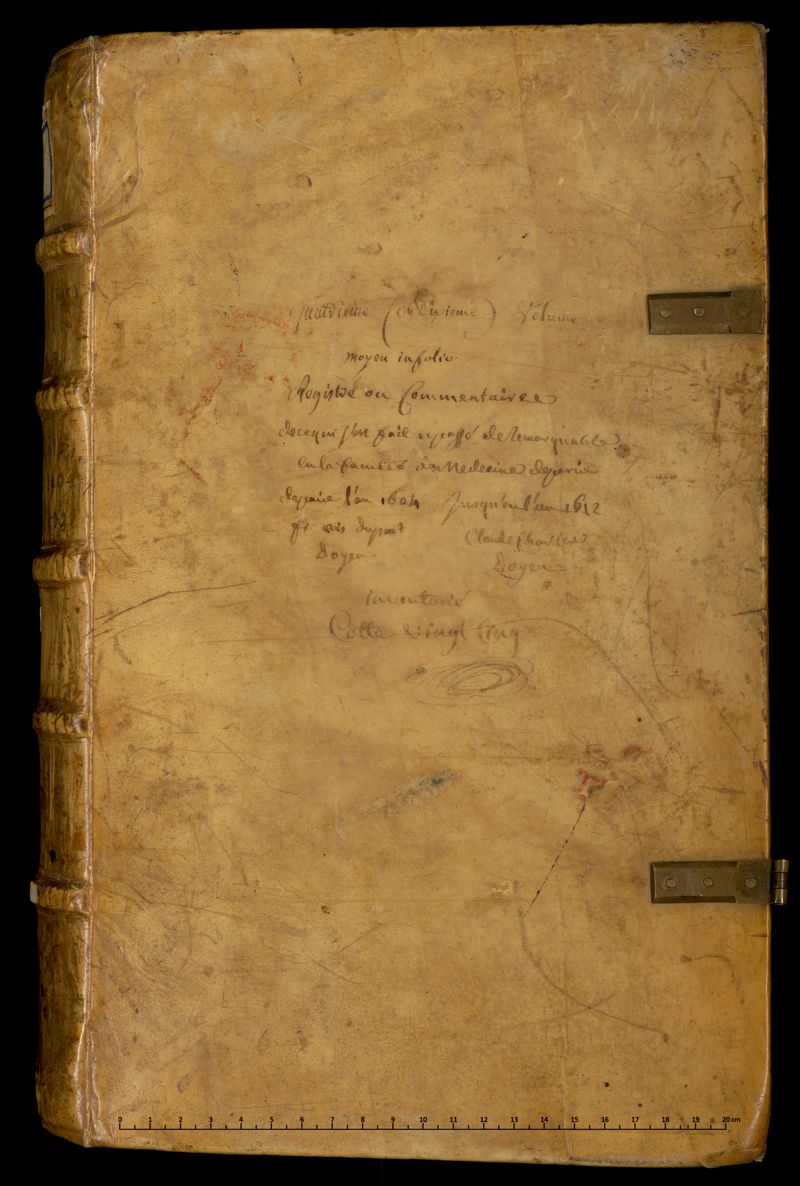 (ou Dixieme) Volume
moyen infolio
Registre ou Commentaires
de ce qui s'est fait et passé de Remarquable
en la faculté de Medecine de paris
depuis l'an 1604 Jusqu'en l'an 1612
Claude Charles
Doyen Doyen
inventorié
Cotte vingt Cinq
0 1 2 3 4 5 6 7 8 9 10 11 12 13 14 15 16 17 18 19 20 cm